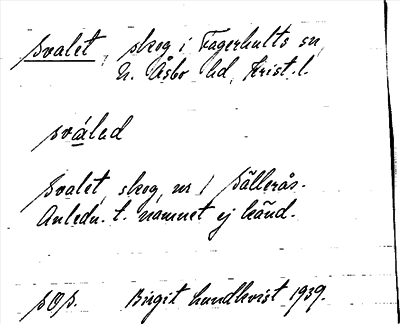 Svalet, skog i Fagerhults sn,
N. Åsbo hd, Krist. l.
sválad
Svalet, skog, nr 1 Sällerås.
Anledn. t. namnet ej känd.
Birgit Lundkvist 1939.